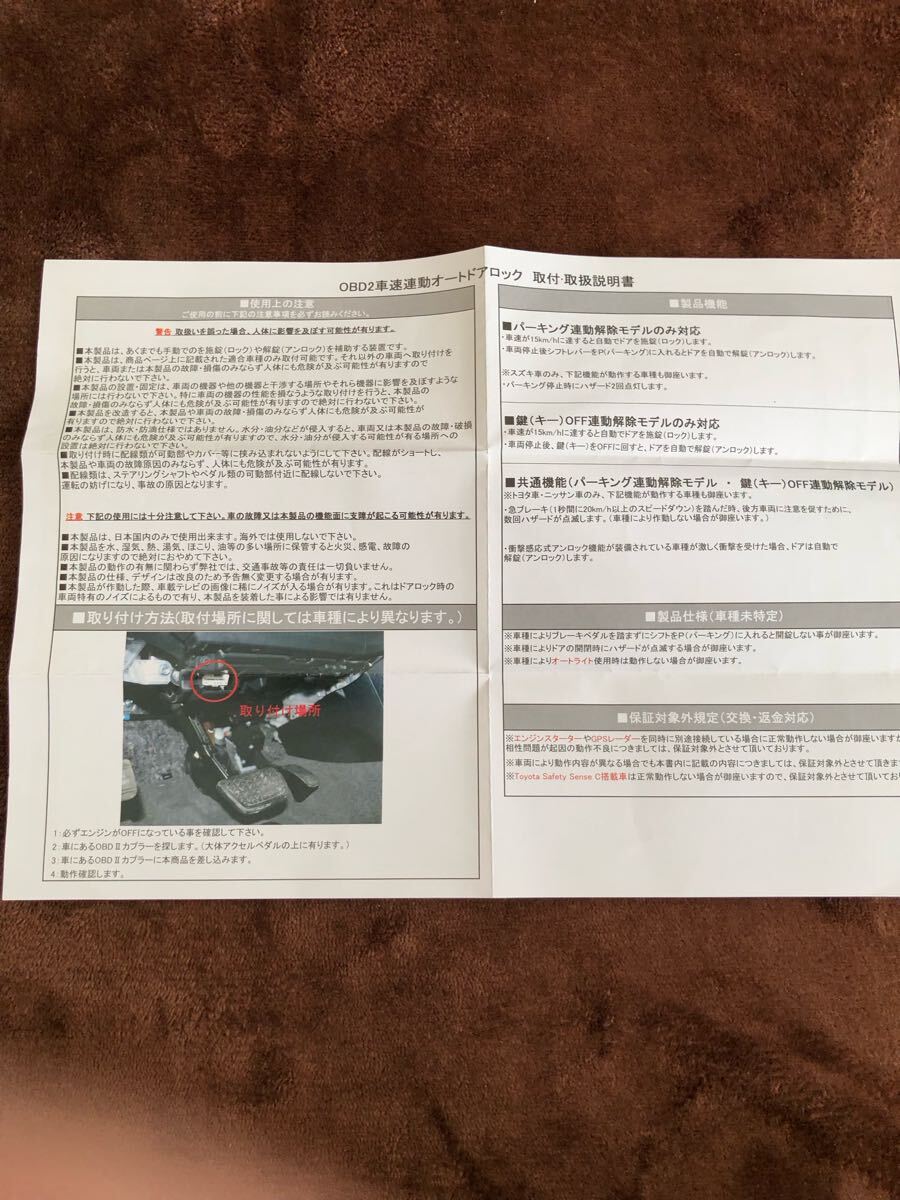 OBD2車速連動オートドアロック 取付･取扱説明書
■使用上の注意
ご使用の前に下記の注意事項を必ずお読みください。
警告 取扱いを誤った場合、人体に影響を及ぼす可能性が有ります。
■本製品は、あくまでも手動でのを施錠(ロック)や解錠(アンロック)を補助する装置です。
■本製品は、商品ページ上に記載された適合車種のみ取付可能です。それ以外の車両へ取り付けを
行うと、車両または本製品の故障・損傷のみならず人体にも危険が及ぶ可能性が有りますので
絶対に行わないで下さい。
■本製品の設置・固定は、車両の機器や他の機器と干渉する場所やそれら機器に影響を及ぼすような
場所には行わないで下さい。特に車両の機器の性能を損なうような取り付を行うと、本製品の
故障・損傷のみならず人体にも危険が及ぶ可能性が有りますので絶対に行わないで下さい。
■本製品を改造すると、本製品や車両の故障・損傷のみならず人体にも危険が及ぶ可能性が
有りますので絶対に行わないで下さい。
■本製品は、防水・防滴仕様ではありません。水分・油分などが侵入すると、車両又は本製品の故障・破損
のみならず人体にも危険が及ぶ可能性が有りますので、水分・油分が侵入する可能性が有る場所への
設置は絶対に行わないで下さい。
■取り付け時に配線類が可動部やカバー等に挟み込まれないようにして下さい。配線がショートし、
本製品や車両の故障原因のみならず、人体にも危険が及ぶ可能性が有ります。
■配線類は、ステアリングシャフトやペダル類の可動部付近に配線しないで下さい。
運転の妨げになり、事故の原因となります。
注意 下記の使用には十分注意して下さい。車の故障又は本製品の機能面に支障が起こる可能性が有ります。
■本製品は、日本国内のみで使用出来ます。海外では使用しないで下さい。
■本製品を水、湿気、熱、湯気、ほこり、油等の多い場所に保管すると火災、感電、故障の
原因になりますので絶対におやめて下さい。
■本製品の動作の有無に関わらず弊社では、交通事故等の責任は一切負いません。
■本製品の仕様、デザインは改良のため予告無く変更する場合が有ります。
■本製品が作動した際、車載テレビの画像に稀にノイズが入る場合が有ります。これはドアロック時の
車両特有のノイズによるもので有り、本製品を装着した事による影響では有りません。
■取り付け方法(取付場所に関しては車種により異なります。)
取り付け場所
1:必ずエンジンがOFFになっている事を確認して下さい。
2:車にあるOBDⅡカプラーを探します。(大体アクセルペダルの上に有ります。)
3:車にあるOBDⅡカプラーに本商品を差し込みます。
4:動作確認します。
■製品機能
■パーキング連動解除モデルのみ対応
・車速が15km/hに達すると自動でドアを施錠(ロック)します。
・車両停止後シフトレバーをP(パーキング)に入れるとドアを自動で解錠(アンロック)します。
※スズキ車のみ、下記機能が動作する車種も御座います。
・パーキング停止時にハザード2回点灯します。
■鍵(キー)OFF連動解除モデルのみ対応
・車速が15km/hに達すると自動でドアを施錠(ロック)します。
・車両停止後、鍵(キー)をOFFに回すと、ドアを自動で解錠(アンロック)します。
■共通機能(パーキング連動解除モデル ・ 鍵(キー)OFF連動解除モデル)
※トヨタ車・ニッサン車のみ、下記機能が動作する車種も御座います。
・急ブレーキ(1秒間に20km/h以上のスピードダウン)を踏んだ時、後方車両に注意を促すために、
数回ハザードが点滅します。(車種により作動しない場合が御座います。)
・衝撃感応式アンロック機能が装備されている車種が激しく衝撃を受けた場合、ドアは自動で
解錠(アンロック)します。
■製品仕様(車種未特定)
※車種によりブレーキペダルを踏まずにシフトをP(パーキング)に入れると開錠しない事が御座います。
※車種によりドアの開閉時にハザードが点滅する場合が御座います。
※車種によりオートライト使用時は動作しない場合が御座います。
■保証対象外規定(交換・返金対応)
※エンジンスターターやGPSレーダーを同時に別途接続している場合に正常動作しない場合が御座いますが
相性問題が起因の動作不良につきましては、保証対象外とさせて頂いております。
※車両により動作内容が異なる場合でも本書内に記載の内容につきましては、保証対象外とさせて頂きま
※Toyota Safety Sense C搭載車は正常動作しない場合が御座いますので、保証対象外とさせて頂いてお